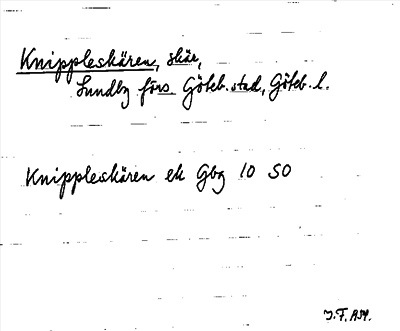 Knippleskären, skär,
Lundby förs. Göteb. stad, Göteb. l.
Knippleskären ek Gbg 10 SO